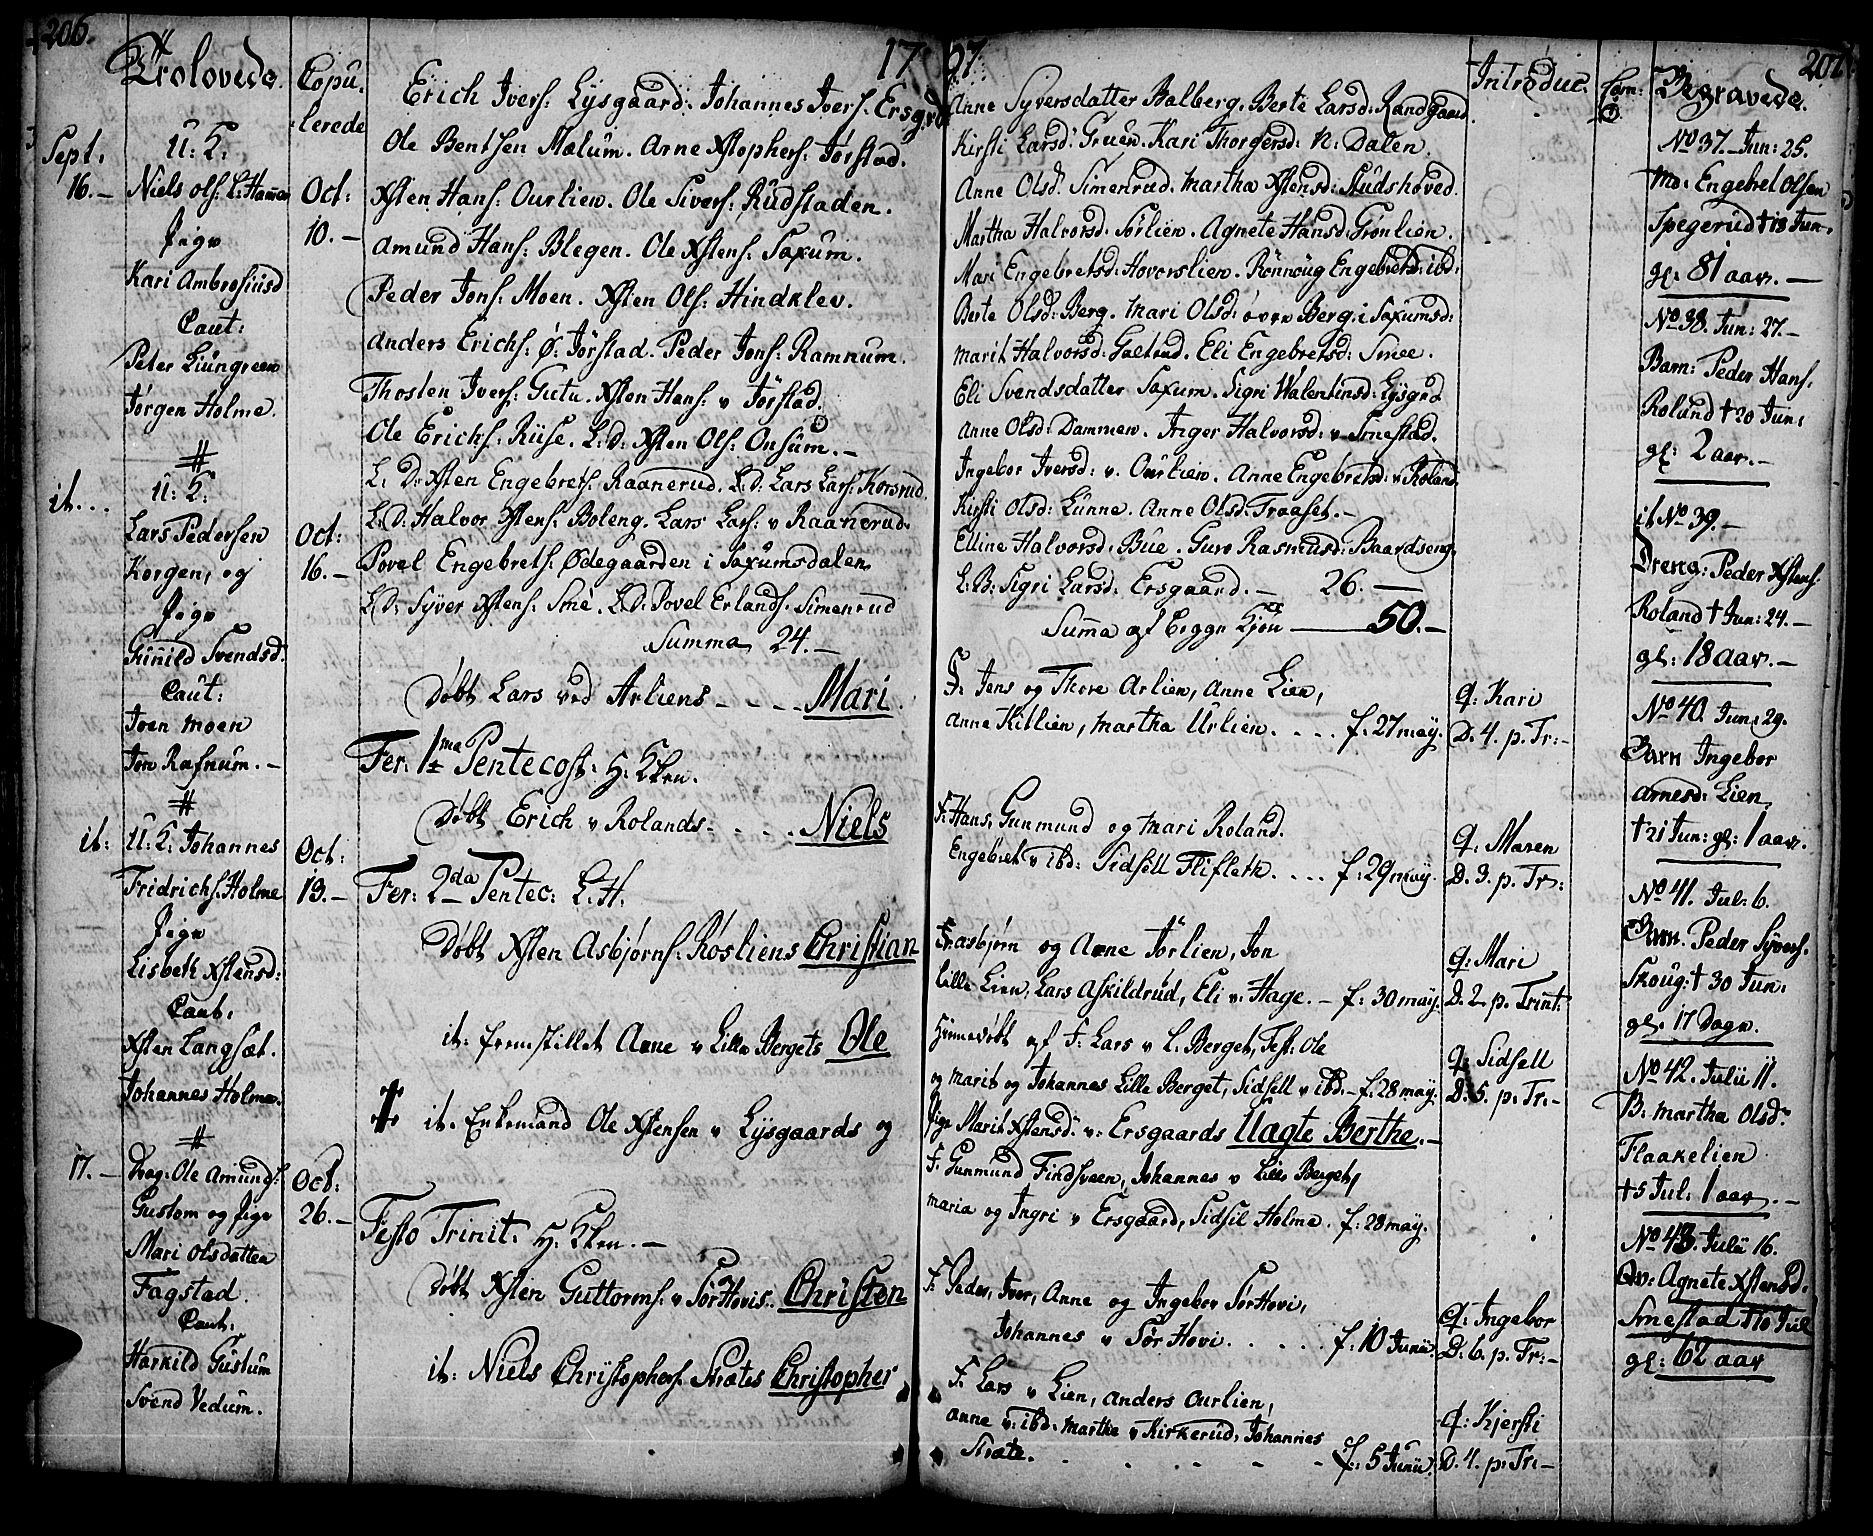 206.
Trolovede.
Sept.
16. –
U: K:
Niels Ols: L: Hammer
Pige
Kari Ambrosiusd
Caut:
Peter Liungreen
Jørgen Holme.
#
it...
U: K:
Lars Pedersen
Korgen, og
Pige
Gunild Svendsd.
Caut:
Joen Moen
Jon Rafnum. –
#
it: U: K: Johannes
Fridrichs. Holme
Pige
Lisbeth Xstensd:
Caut.
Xsten Langsæt.
Johannes Holme.
#
17. – Drag: Ole Amunds:
Gustom og Pige
Mari Olsdatter
Fagstad.
Caut.
Harkild Gustum
Svend Vedum.
Copu-
lerede
Oct:
10. –
Oct:
16. –
Oct:
13. –
Oct:
26. –
17
Erich Ivers: Lysgaard. Johannes Ivers. Ersgrd
Ole Bentsen Mælum. Arne Xstophers: Jørstad.
Xsten Hans: Ourlien. Ole Sivers: Rudstaden.
Amund Hans: Blegen. Ole Xstens: Saxum.
Peder Jons: Moen. Xsten Ols: Hindklev.
Anders Erichs: Ø: Jørstad. Peder Jons: Ramnum.
Thosten Ivers: Gutu. Xsten Hans: v Jørstad.
Ole Erichs: Riise. L: D: Xsten Ols: Onsum. –
L: D: Xsten Engebrets. Raanerud. L: D: Lars Lars: Korsrud.
L: D: Halvor Xstens: Boleng. Lars Lars: v Raanerud.
Povel Engebrets. Ødegaarden i Saxumsdalen.
L: D: Syver Xstens: Smé. L: D: Povel Erlands. Simenrud
Summa 24. –
Døbt Lars ved Arliens - - - Mari.
Fer: 1ma Pentecost. H: Sken.
Døbt Erich v Rolands. . . . . Niels
Fer: 2da Pentec: L: H.
Døbt Xsten Asbjørns: Rosliens Christian
it: fremstillet Anne v Lille Bergets Ole
‡ it. Enkemand Ole Xstensen v Lysgaards og
Festo Trinit. H: Sken. –
Døbt Xsten Guttorms: v Sør Hovis. Christen
it: Niels Christophers. Stræte Christopher
67
Anne Syversdatter Balberg. Berte Larsd. Randgaard.
Kirsti Larsd: Gruen. Kari Thorgersd: N: Dalen.
Anne Olsd. Simenrud. Martha Xstensd: Studshoved.
Martha Halvorsd. Sørlien. Agnete Hansd. Grønlien.
Mari Engebretsd: Hovorslien. Rønnoug Engebretsd: ibd:
Berte Olsd: Berg. Mari Olsd: øvre Berg. i Saxumsd:
Marit Halvorsd: Gaetrud. Eli Engebretsd: Smee.
Eli Svendsdatter Saxum. Sigri Walentinsd: Lysgrd
Anne Olsd: Dammen. Inger Halvorsd: v Smestad.
Ingebor Iversd: v. Ourlien. Anne Engebretsd: v Roland.
Kirsti Olsd: Lunne. Anne Olsd. Traaset. –
Elline Halvorsd. Bue. Guro Rasmusd: Baardseng.
L: B: Sigri Larsd: Ersgaard. – 26. –
Summa af begge Kjøn — 50. –
F: Jens og Thore Arlien, Anne Lien,
Anne Killien, Martha Urlien. . . . . f. 27 may.
F. Hans, Gunmund og Mari Roland.
Engebret v ibd: Sidsell Flifleth. . . . . f: 29 may.
F: Asbjørn og Anne Jørlien, Jon
Lille Lien, Lars Askildrud, Eli v. Hage. – f: 30 may.
Hjemedøbt af F. Lars v L. Berget, Test: Ole
og Marit og Johannes Lille Berget, Sidsell v ibd. – f. 28 may.
Pige Marit Xstensd. v. Ersgaards Uagte Berthe. –
F. Gunmund Findsveen, Johannes v Lille Berget,
Maria og Ingri v Ersgaard, Sidsil Holme. f. 28 may.
F. Peder, Iver, Anne og Ingebor Sør Hovi,
Johannes v Sør Hovi. . . . . . f. 10 Junii.
F. Lars v Lien, Anders Ourlien,
Anne v. ibd: Marthe v Kirkerud, Johannes
Stræte. . . . – – f: 5 Junii.
Introduc.
q: Kari
D. 4. p. Tr: –
q. Maren
D. 3. p. Tr:
q: Mari
D. 2. p. Trint:
q: Sidsell
D. 5. p. Tr: –
q: Ingebor
D. 6. p. Tr: –
q: Kjersti
D. 4. p. Tr: –
207.
Begravede.
No 37. – Jun: 25.
Md: Engebret Olsen
Spegerud † 18 Jun.
gl: 81 aar. –
No 38. Jun: 27. –
Barn: Peder Hans.
Roland † 20 Jun:
gl: 2 aar. –
it No 39. –
Dreng: Peder Xstens.
Roland † Jun: 24. –
gl: 18 aar. –
No 40. Jun: 29.
Barn Ingebor
Arnesd: Lien.
† 21 Jun: gl: 1 aar.
No 41. Jul: 6.
Barn. Peder Syvers.
Skoug: † 30 Jun:
gl: 17 Dage.
No 42. Julii 11.
B: Martha Olsd:
Flaakelien
† 5 Jul: 1 aar. –
No 43. Julii 16.
Qv: Agnete Xstensd.
Smestad † 10 Jul
gl: 62 aar